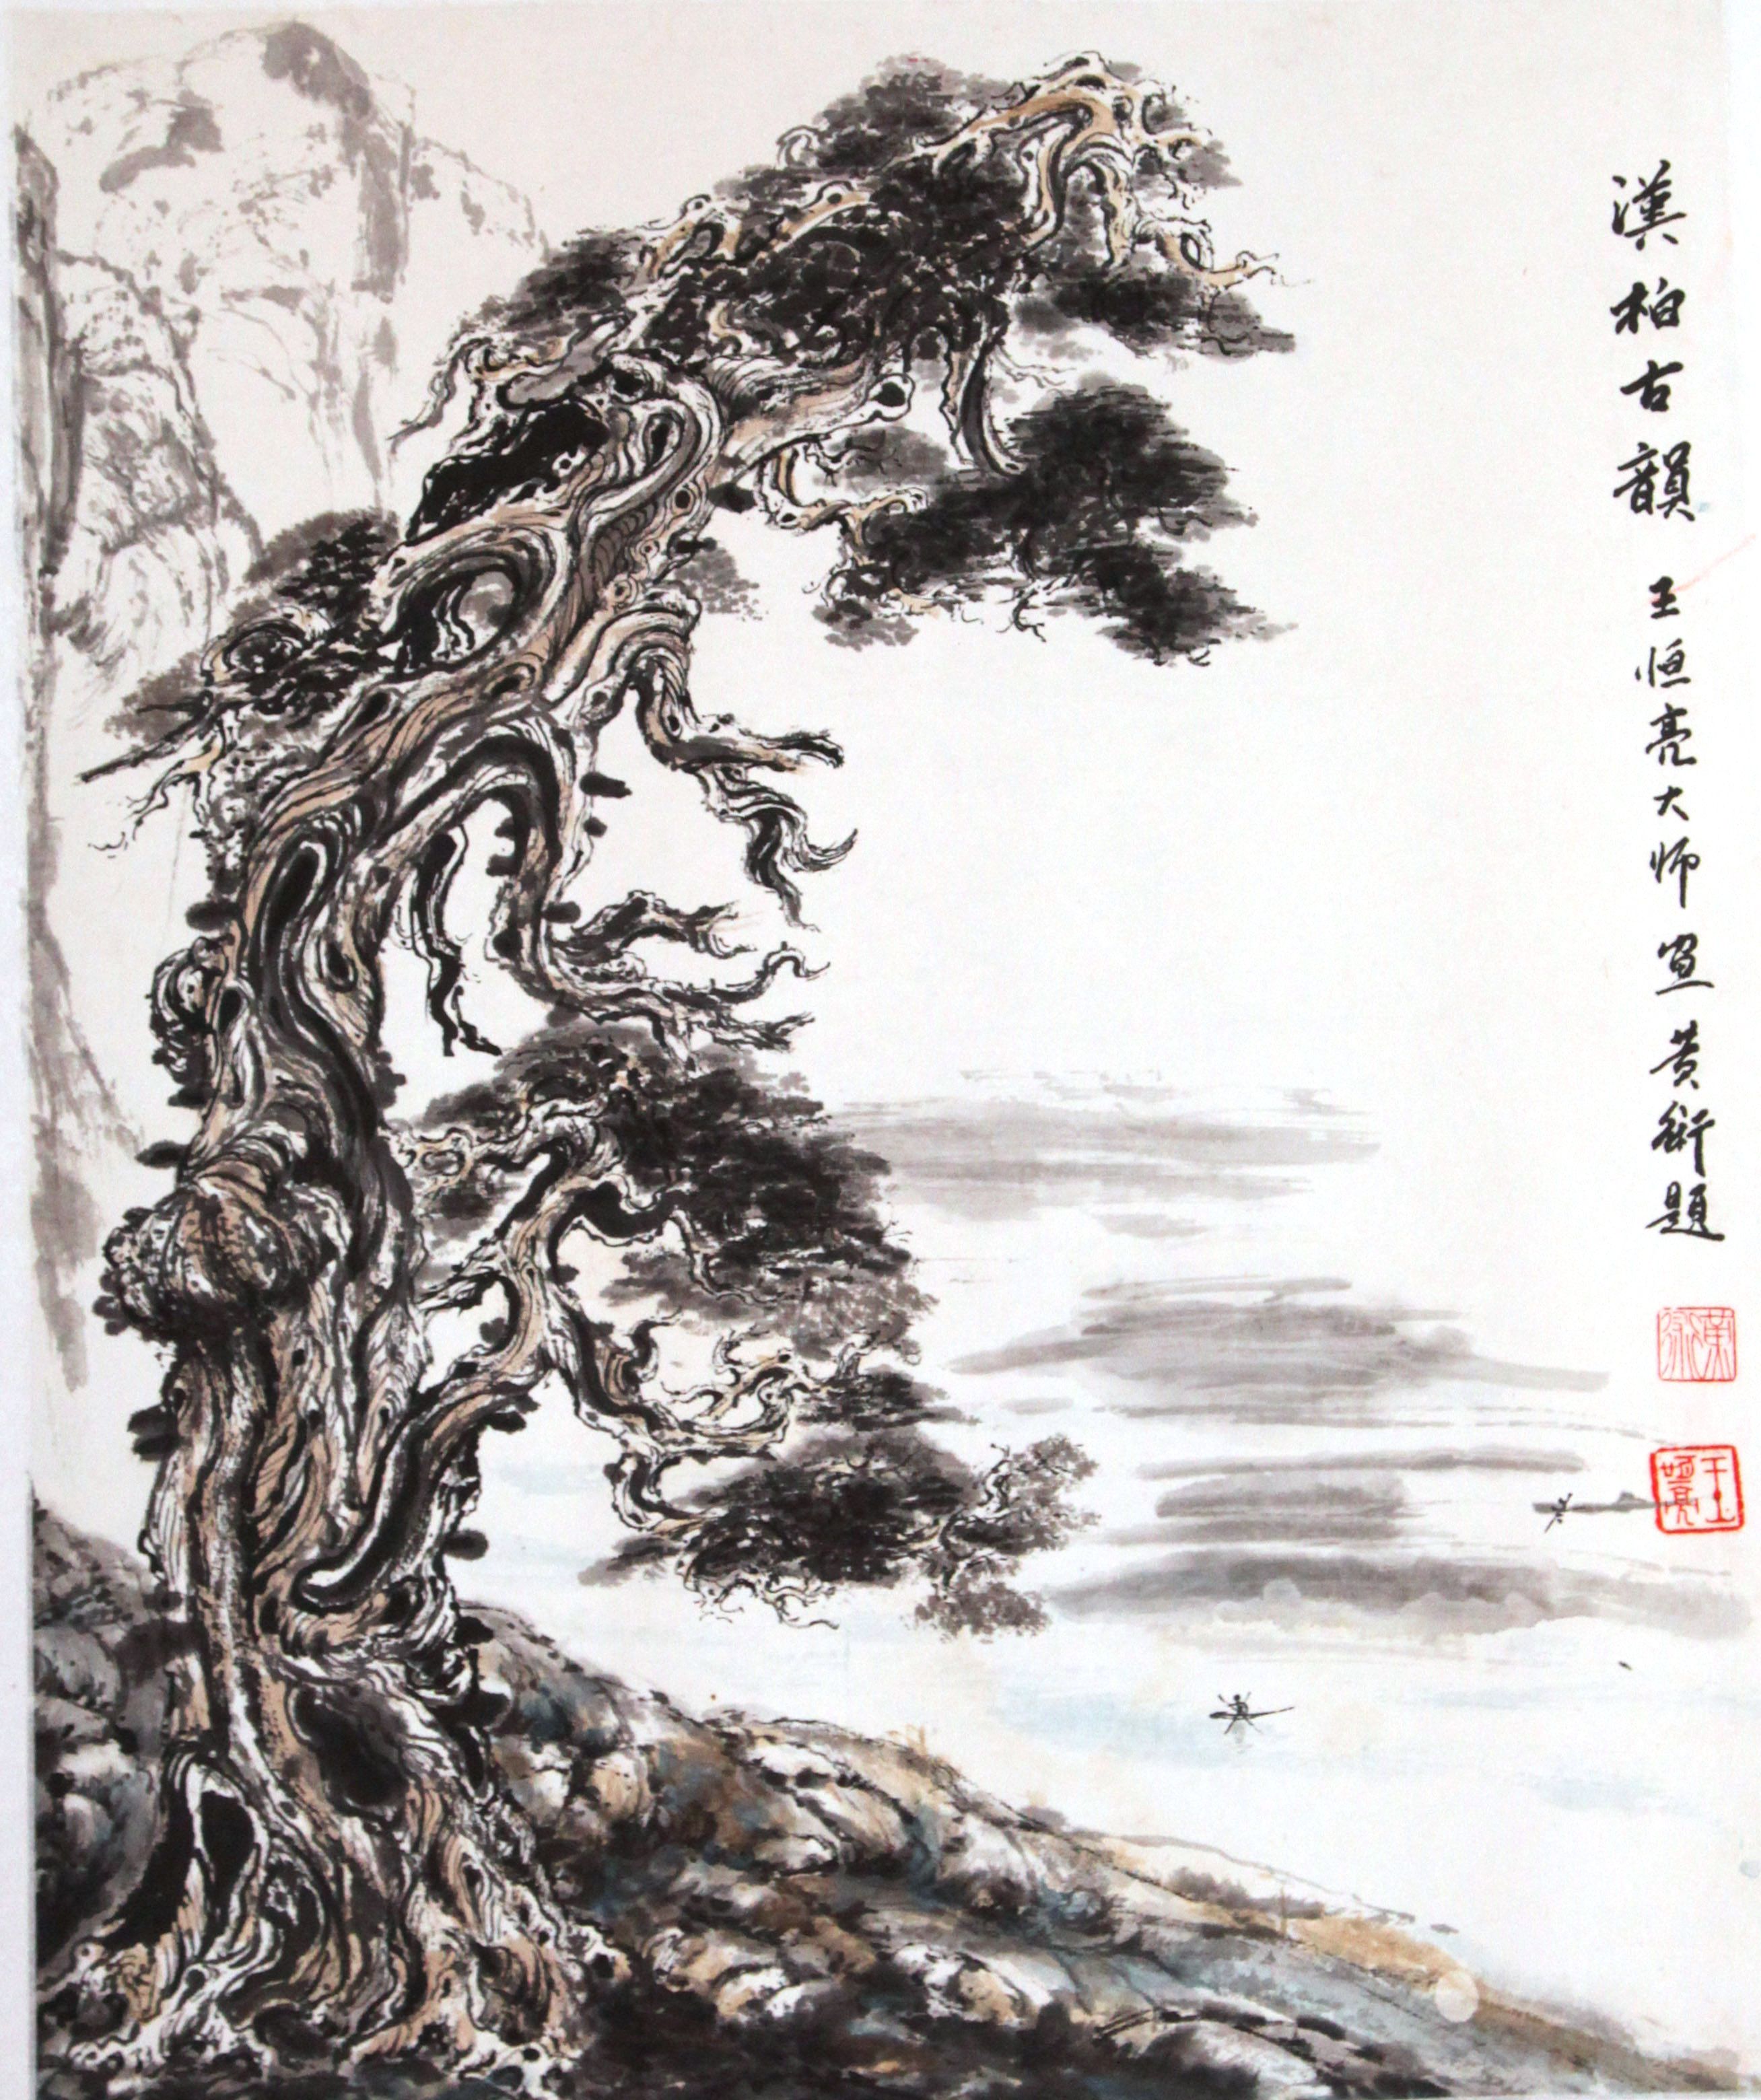 漢柏古韻 王恒亮大师画 黄衍題